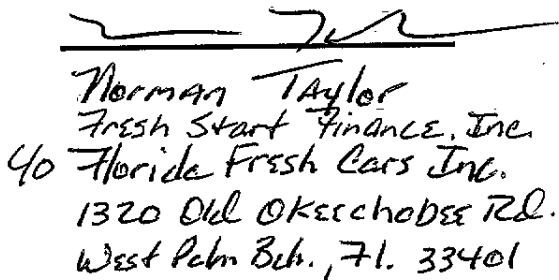 Norman Taylor
Fresh Start Finance, Inc.
c/o Florida Fresh Cars Inc.
1320 Old Okeechobee Rd.
West Palm Bch., Fl. 33401